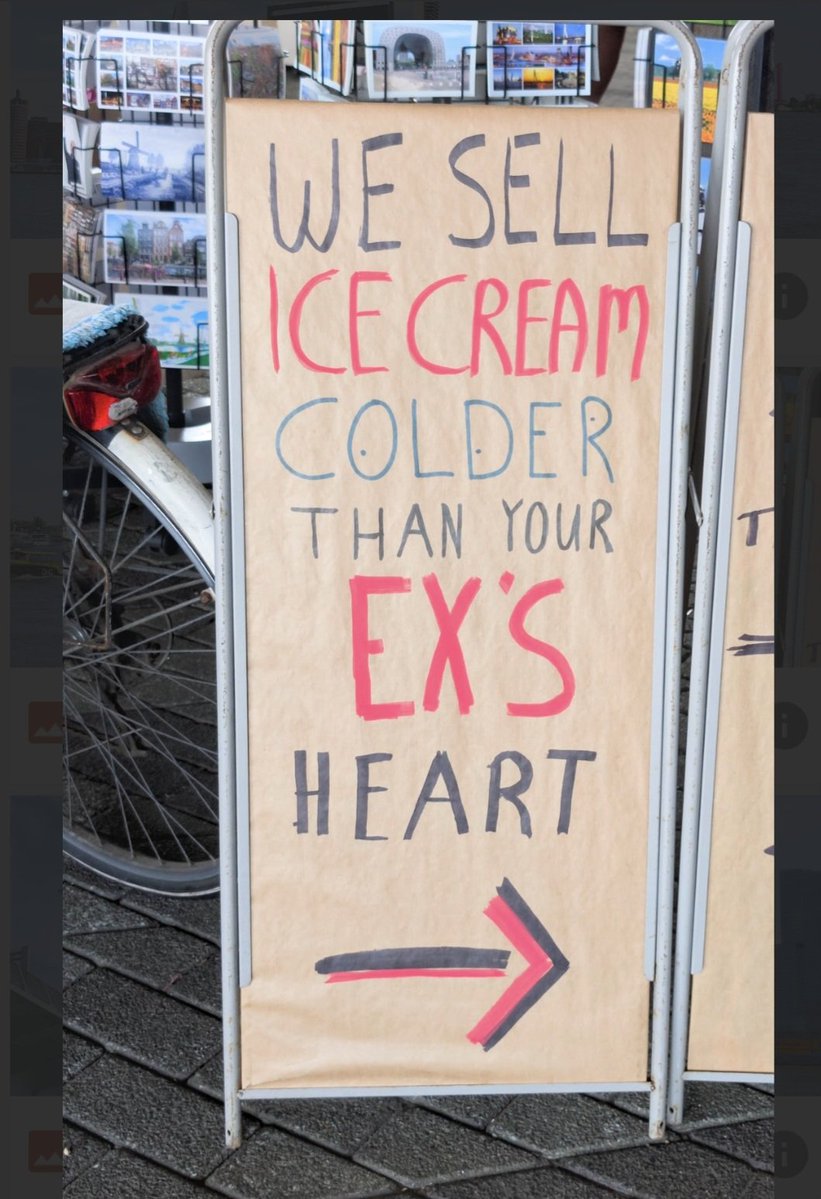 WE SELL
ICE CREAM
COLDER
THAN YOUR
EX'S
HEART